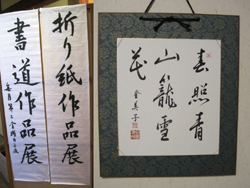 折り紙作品展
書道作品展
春照青
山籠雪